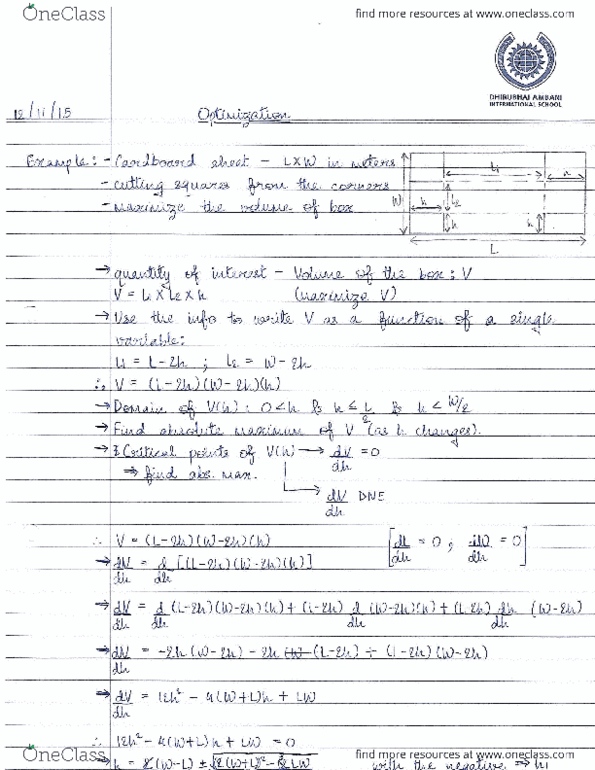 OneClass find more resources at www.oneclass.com
DHIRUBHAI AMBANI
INTERNATIONAL SCHOOL
12/11/15 Optimization
Example: - Cardboard sheet - L×W in meters
- cutting squares from the corners
- maximize the volume of box
L₁ h
W h L₂
h h
L
→ quantity of interest - Volume of the box : V
V = L₁ × L₂ × h (maximize V)
→ Use the info to write V as a function of a single
variable:
L₁ = L - 2h ; L₂ = W - 2h
∴ V = (L-2h)(W-2h)(h)
→ Domain of V(h) : 0<h & h ≤ L/2 & h < W/2
→ Find absolute maximum of V (as h changes).
→ Critical points of V(h) → dV/dh = 0
⇒ find abs. max.
dV/dh DNE
∴ V = (L-2h)(W-2h)(h) [dL/dh = 0 ; dW/dh = 0]
→ dV/dh = d/dh [(L-2h)(W-2h)(h)]
→ dV/dh = d/dh (L-2h)(W-2h)(h) + (L-2h) d/dh (W-2h)(h) + (L-2h) dh/dh (W-2h)
→ dV/dh = -2h(W-2h) - 2h (L-2h) + (L-2h)(W-2h)
→ dV/dh = 12h² - 4(W+L)h + LW
∴ 12h² - 4(W+L)h + LW = 0
with the negative → h₁
OneClass find more resources at www.oneclass.com